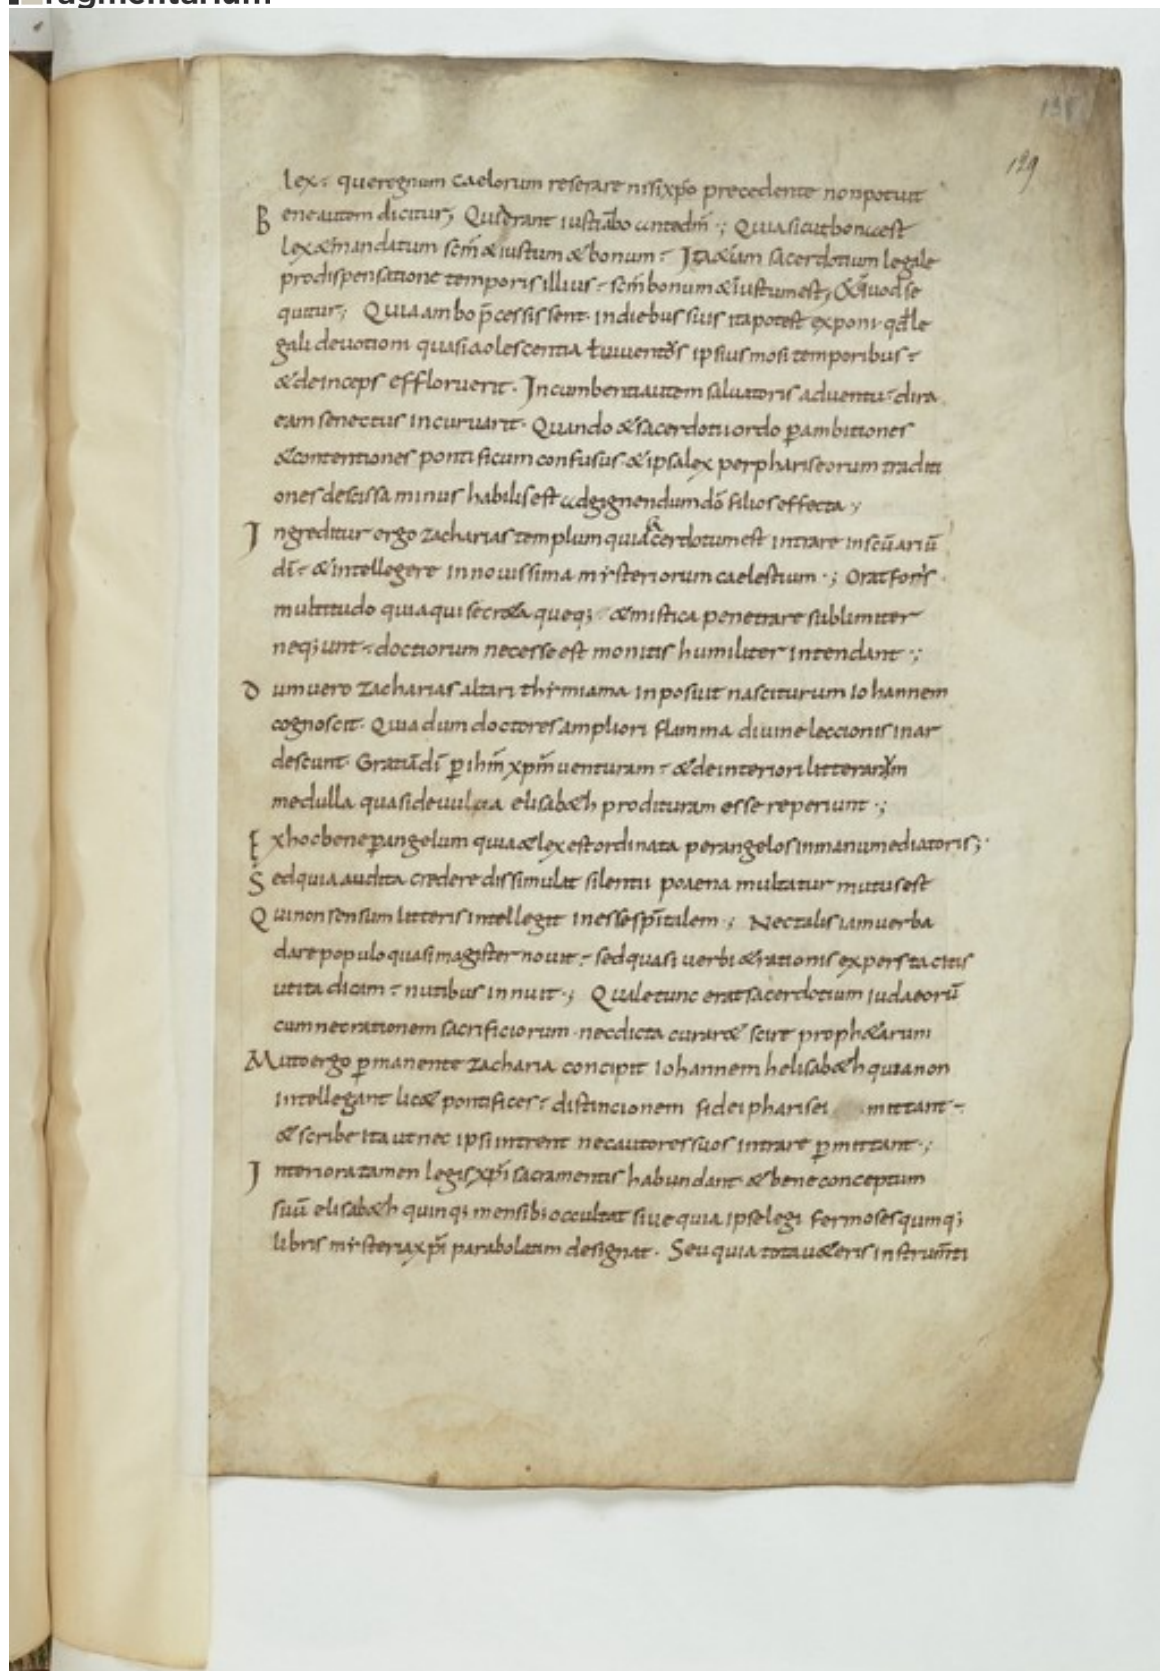 ragmentarium
129
lex· que regnum caelorum reserare nisi xp̄o precedente non potuit
Bene autem dicitur; Qui erant iusti abo ante dm̄·; Quia sicut bonu est
lex & mandatum scm̄ & iustum & bonum· Ita & iam sacerdotium legale
prodispensatione temporis illius· scm̄ bonum & iustum est; & quod se
quitur; Quia ambo p̄cessissent· indiebus suis ita potest exponi· qđ le
gali devotioni quasi adolescentia ł iuventus ipsius mosi temporibus·
& deinceps effloruerit· Incumbenti autem salvatoris adventu· dira
eam senectus incurvarit· Quando & sacerdotii ordo p̄ ambitiones
& contentiones pontificum confusus· & ipsa lex per phariseorum traditi
ones descissa minus habilis est ad gignendum dō filios effecta;
Ingreditur ergo zacharias templum quia sacerdotum est intrare in scūariū
dī· & intellegere in novissima mysteriorum caelestium·; Orat foris
multitudo quia qui secr&a queq; & mistica penetrare sublimiter
neq;unt· doctiorum necesse est monitis humiliter intendant·;
Dum vero zacharias altari thymiama inposuit nasciturum iohannem
cognoscit· Quia dum doctores ampliori flamma divine leccionis inar
descunt· Gratiā dī p̄ ihm̄ xpm̄ venturam· & de interiori litterarum
medulla quasi de vulva elisab&h prodituram esse reperiunt·;
Ex hoc bene p̄ angelum quia & lex est ordinata per angelos in manu mediatoris;
Sed quia audita credere dissimulat silentii poaena multatur mutus est
Qui non sensum litteris intellegit inesse spīritalem·; Nec talis iam verba
dare populo quasi magister novit· sed quasi verbi & rationis expers tacitis
ut ita dicam· nutibus innuit·; Quale tunc erat sacerdotium iudaeorū
cum nec rationem sacrificiorum· nec dicta curar& scire proph&arum
Muto ergo p̄manente zacharia concipit iohannem helisab&h quia non
intellegant lic& pontifices· distincionem fidei pharisei mittant·
& scribe ita ut nec ipsi intrent nec autores suos intrare p̄mittant·;
Interiora tamen legis xp̄i sacramentis habundant· & bene conceptum
suū elisab&h quinq; mensib; occultat sive quia ipse legi fer moses quinq;
libris mysteria xp̄i parabolatim designat· Seu quia tota v&eris instrum̄ti